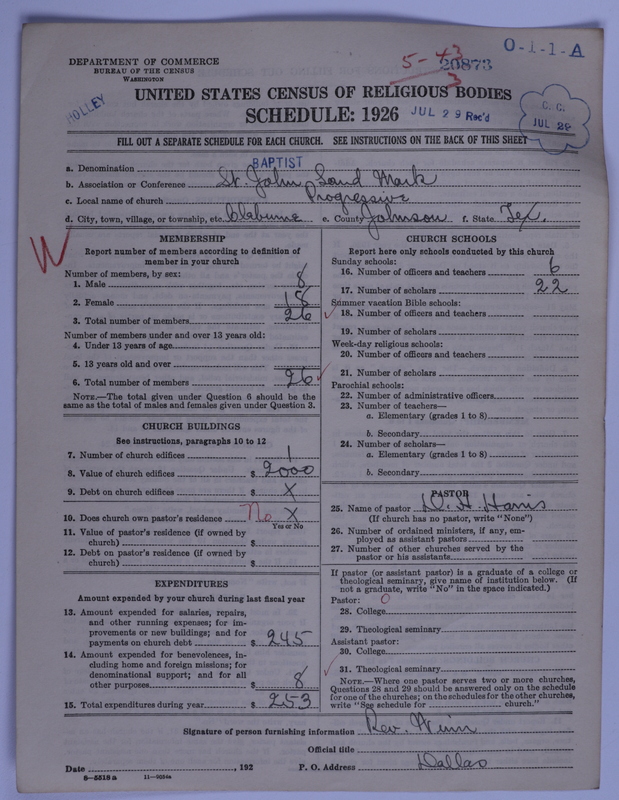 DEPARTMENT OF COMMERCE
BUREAU OF THE CENSUS
WASHINGTON
5-43
3
20873
O-1-1-A
HOLLEY
UNITED STATES CENSUS OF RELIGIOUS BODIES
SCHEDULE: 1926
JUL 29 Rec'd
C. C.
JUL 29
FILL OUT A SEPARATE SCHEDULE FOR EACH CHURCH. SEE INSTRUCTIONS ON THE BACK OF THIS SHEET
a. Denomination BAPTIST
b. Association or Conference St. John Land Mark
c. Local name of church Progressive
d. City, town, village, or township, etc. Claburne e. County Johnson f. State Tex.
W
MEMBERSHIP
Report number of members according to definition of
member in your church
Number of members, by sex:
1. Male 8
2. Female 18
3. Total number of members 26
Number of members under and over 13 years old:
4. Under 13 years of age
5. 13 years old and over
6. Total number of members 26
NOTE.—The total given under Question 6 should be the
same as the total of males and females given under Question 3.
CHURCH BUILDINGS
See instructions, paragraphs 10 to 12
7. Number of church edifices 1
8. Value of church edifices $ 2000
9. Debt on church edifices $ X
10. Does church own pastor's residence No X
Yes or No
11. Value of pastor's residence (if owned by
church) $
12. Debt on pastor's residence (if owned by
church) $
EXPENDITURES
Amount expended by your church during last fiscal year
13. Amount expended for salaries, repairs,
and other running expenses; for im-
provements or new buildings; and for
payments on church debt $ 245
14. Amount expended for benevolences, in-
cluding home and foreign missions; for
denominational support; and for all
other purposes $ 8
15. Total expenditures during year $ 253
CHURCH SCHOOLS
Report here only schools conducted by this church
Sunday schools:
16. Number of officers and teachers 6
17. Number of scholars 22
Summer vacation Bible schools:
18. Number of officers and teachers
19. Number of scholars
Week-day religious schools:
20. Number of officers and teachers
21. Number of scholars
Parochial schools:
22. Number of administrative officers
23. Number of teachers—
a. Elementary (grades 1 to 8)
b. Secondary
24. Number of scholars—
a. Elementary (grades 1 to 8)
b. Secondary
PASTOR
25. Name of pastor D. H. Harris
(If church has no pastor, write "None")
26. Number of ordained ministers, if any, em-
ployed as assistant pastors
27. Number of other churches served by the
pastor or his assistants
If pastor (or assistant pastor) is a graduate of a college or
theological seminary, give name of institution below. (If
not a graduate, write "No" in the space indicated.)
Pastor: 0
28. College
29. Theological seminary
Assistant pastor:
30. College
31. Theological seminary
NOTE.—Where one pastor serves two or more churches,
Questions 28 and 29 should be answered only on the schedule
for one of the churches; on the schedules for the other churches,
write "See schedule for church."
Signature of person furnishing information Rev. Winn
Official title
Date , 192 P. O. Address Dallas
8-5518 a 11-9054a